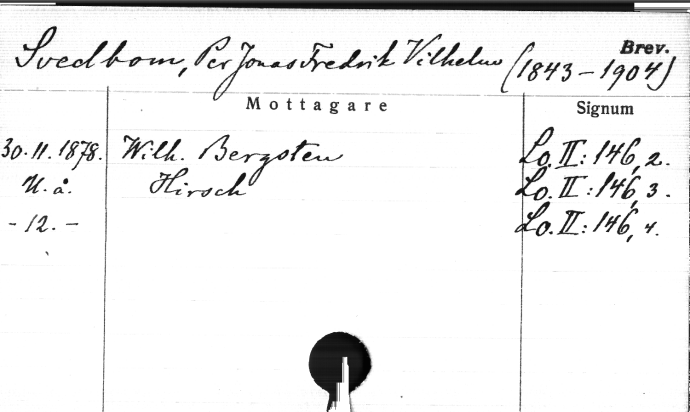 Svedbom, Per Jonas Fredrik Vilhelm (1843-1904) Brev.
Mottagare Signum
30.11.1878. Wilh. Bergsten Lo. II: 146, 2.
U. å. Hirsch Lo. II: 146, 3.
- 12. - Lo. II: 146, 4.